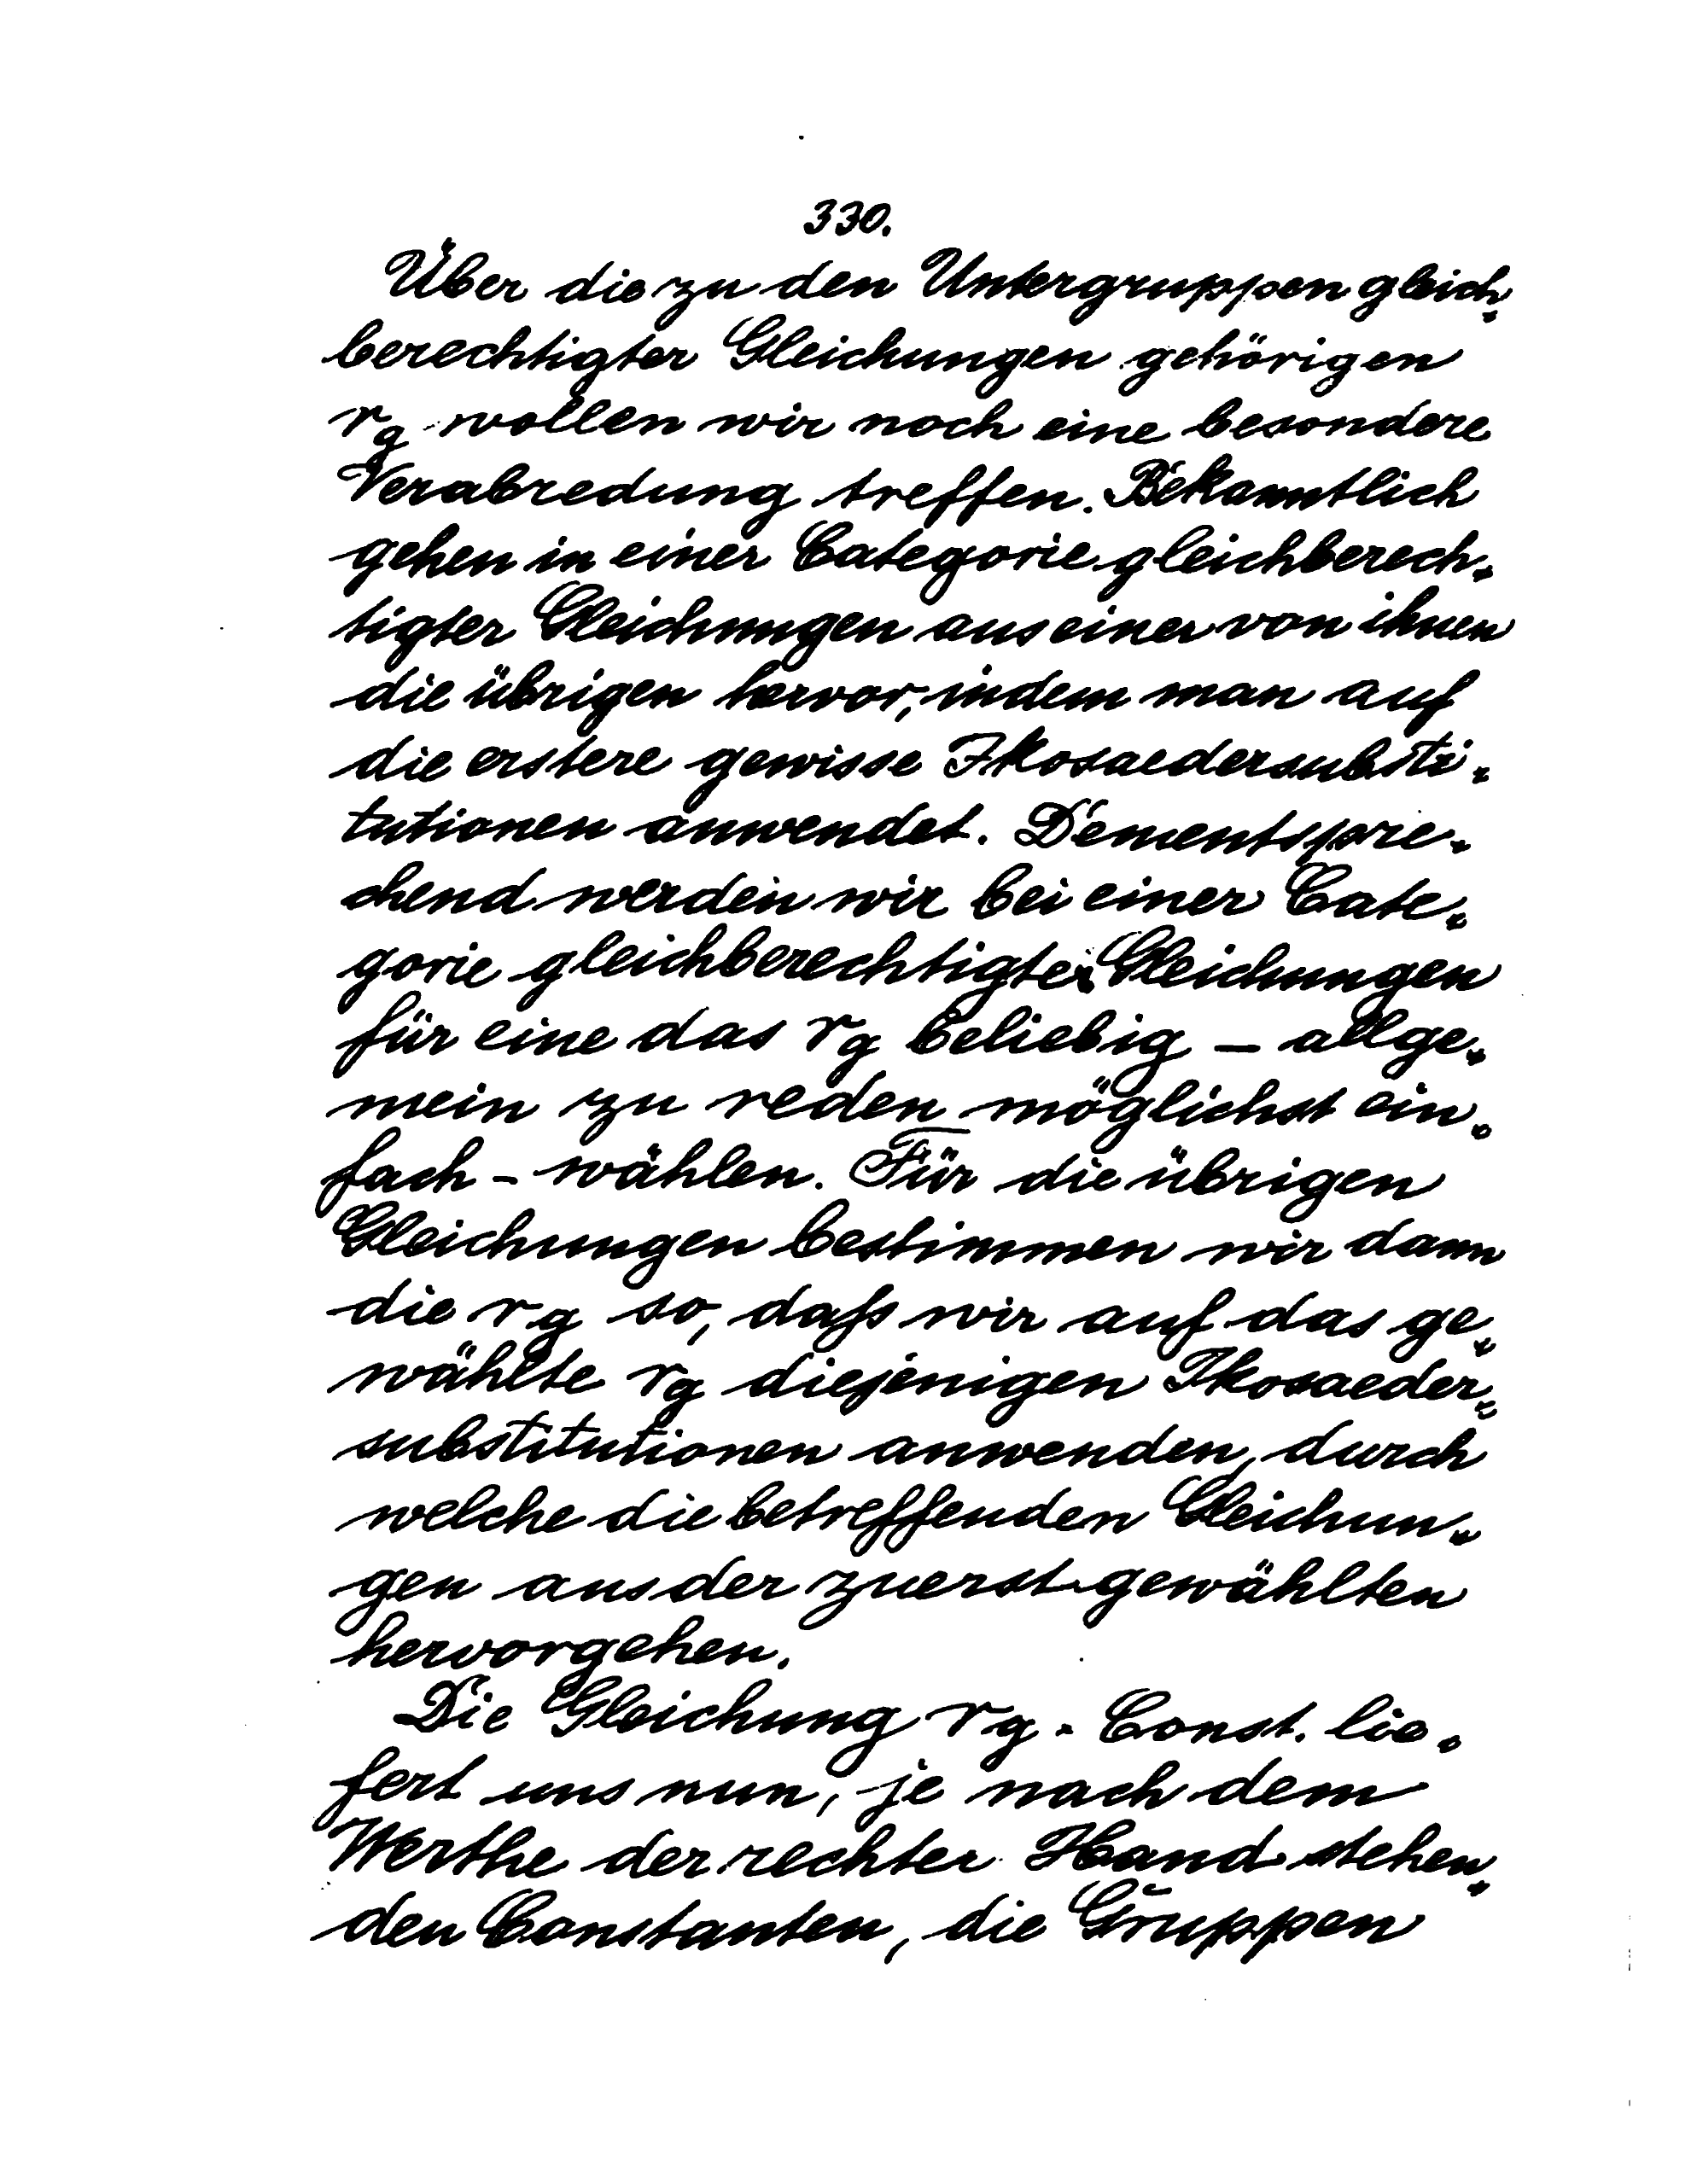 330.
Über die zu den Untergruppen gleich-
berechtigter Gleichungen gehörigen
r_g wollen wir noch eine besondere
Verabredung treffen. Bekanntlich
gehen in einer Categorie gleichberech-
tigter Gleichungen aus einer von ihnen
die übrigen hervor, indem man auf
die erstere gewisse Ikosaedersubsti-
tutionen anwendet. Dementspre-
chend werden wir bei einer Cate-
gorie gleichberechtigter Gleichungen
für eine das r_g beliebig – allge-
mein zu reden möglichst ein-
fach – wählen. Für die übrigen
Gleichungen bestimmen wir dann
die r_g so, daß wir auf das ge-
wählte r_g diejenigen Ikosaeder-
substitutionen anwenden, durch
welche die betreffenden Gleichun-
gen aus der zuerst gewählten
hervorgehen.
Die Gleichung r_g = Const. lie-
fert uns nun, je nach dem
Werthe der rechter Hand stehen-
den Constanten, die Gruppen